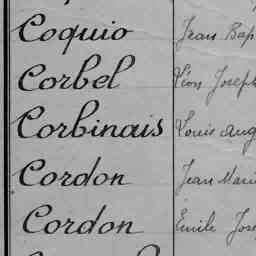 Coquio Jean Bap
Corbel Léon Joseph
Corbinais Louis Aug
Cordon Jean Marie
Cordon Emile Jose